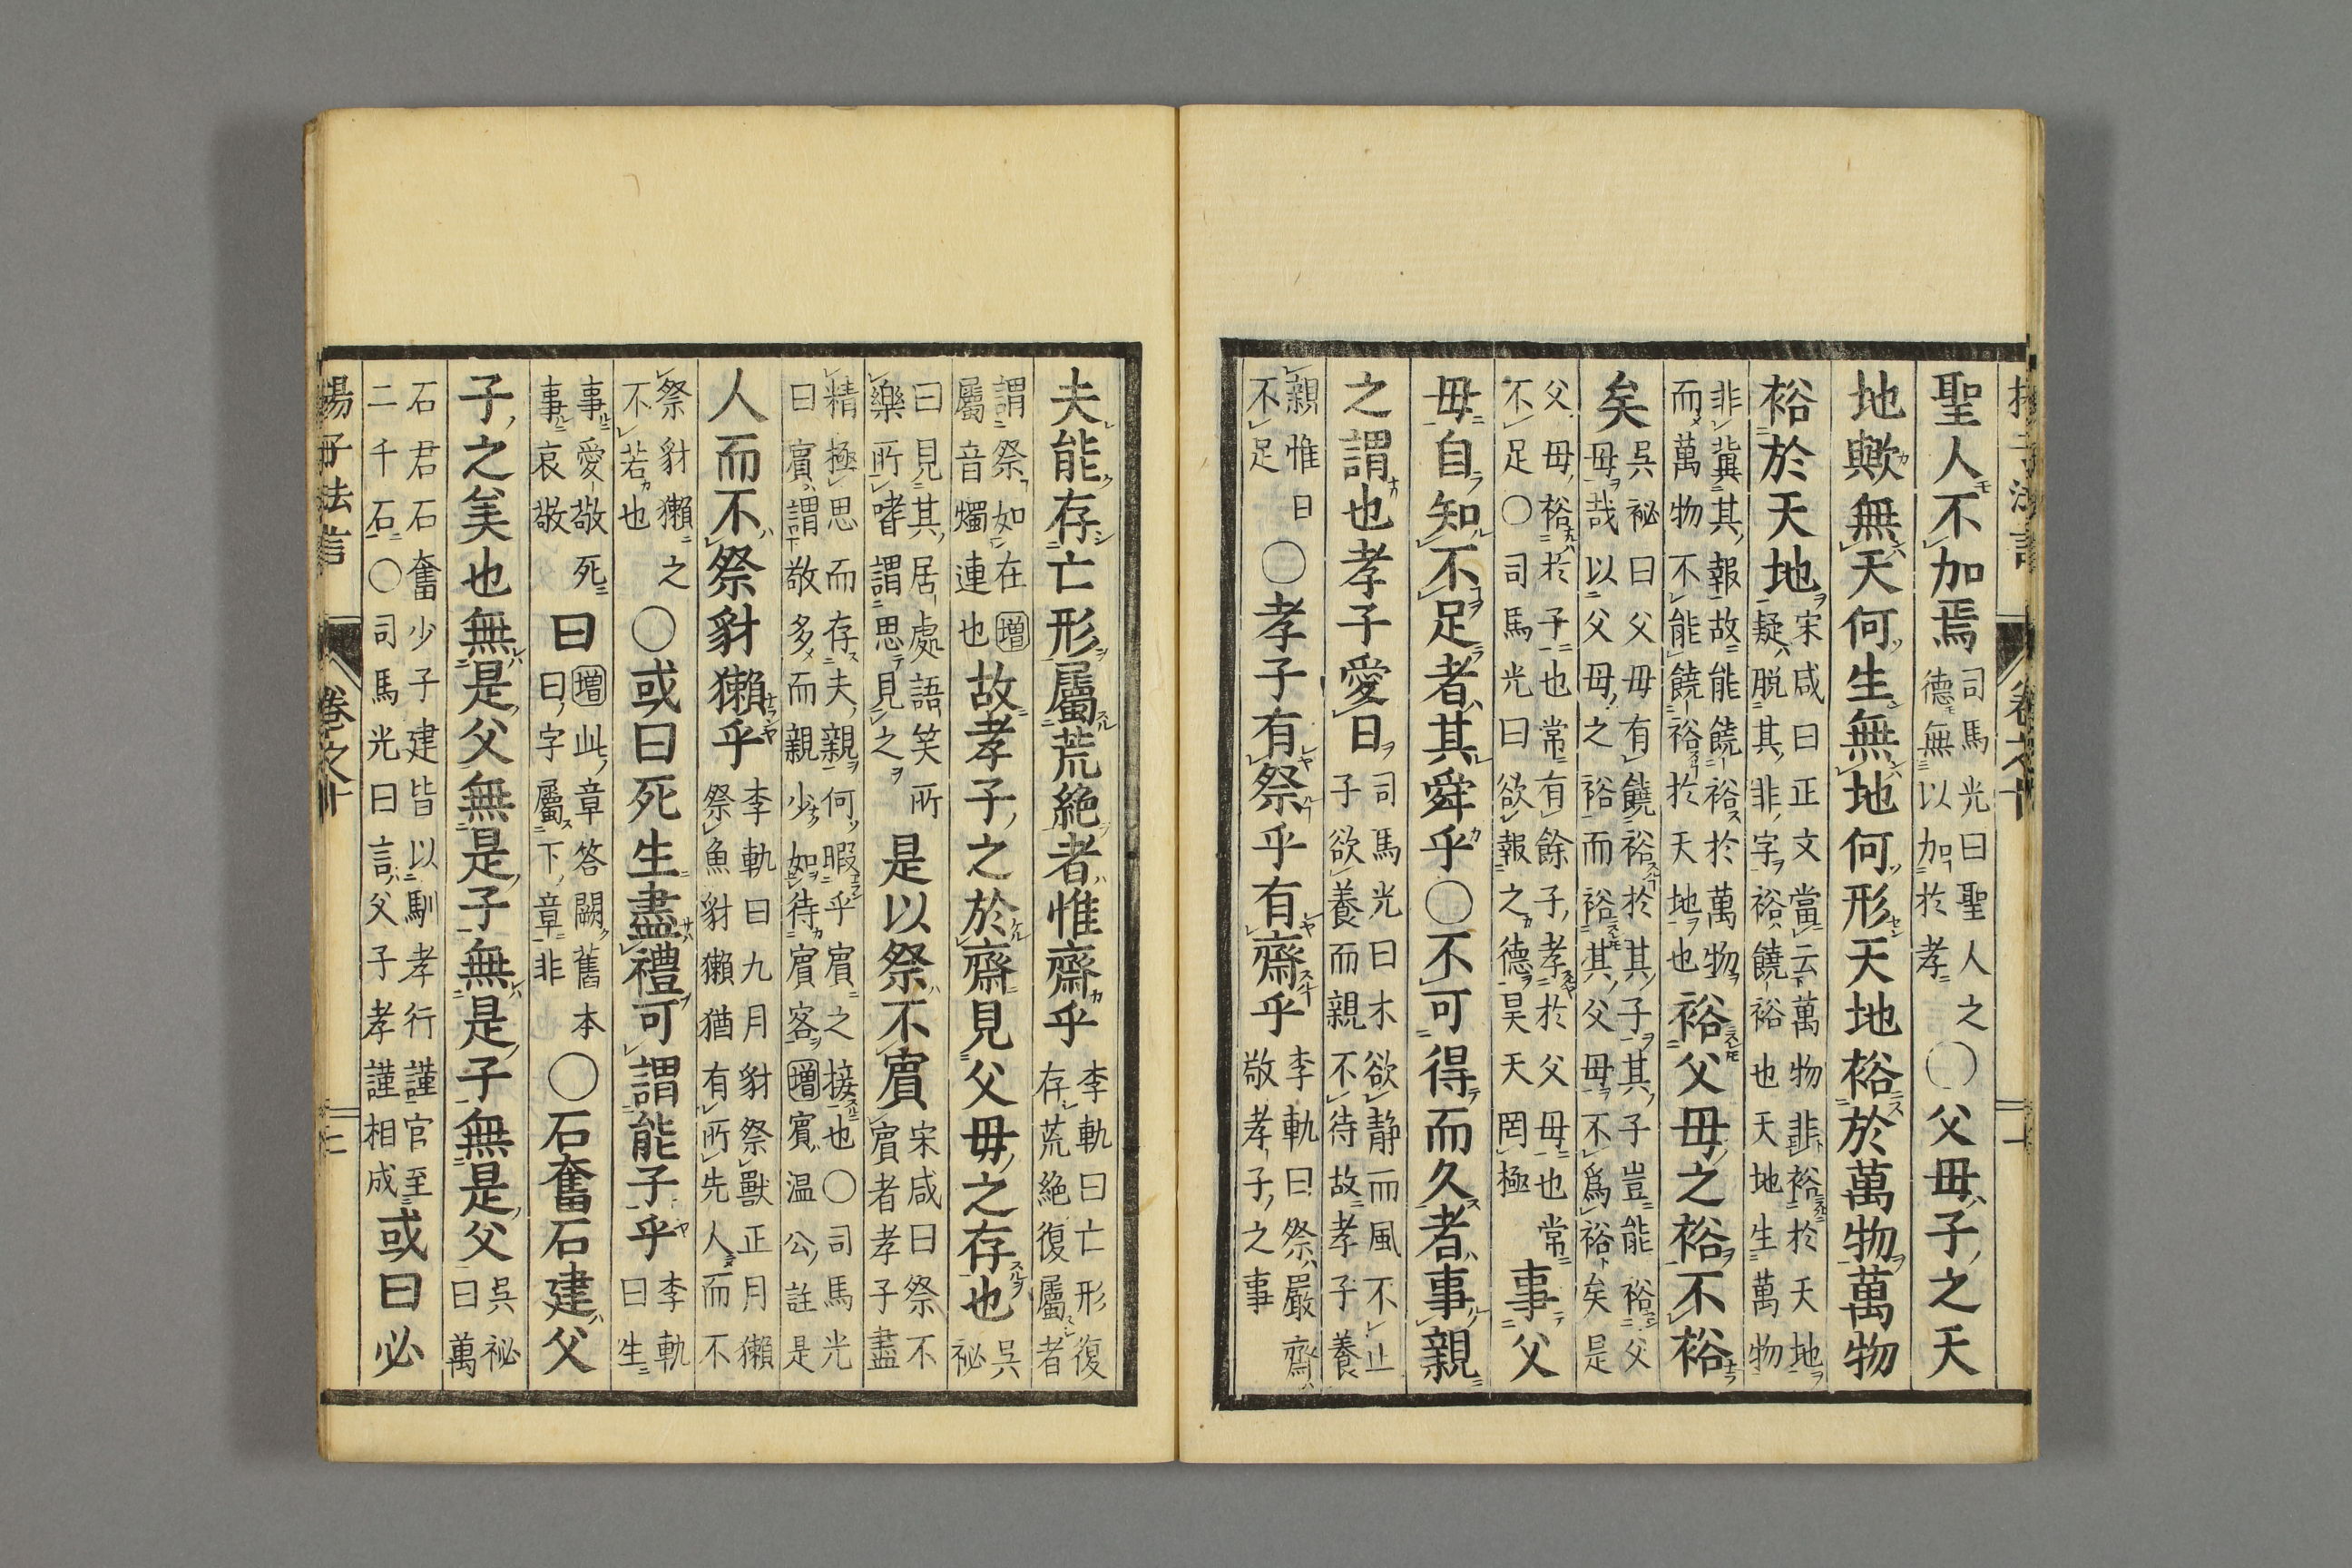 聖人不加焉司馬光曰聖人之德無以加於孝○父母子之天
地歟無天何生無地何形天地裕於萬物萬物
裕於天地宋咸曰正文當云萬物非裕於天地疑脱其非字裕饒裕也天地生萬物
非兾其報故能饒裕於萬物而萬物不能饒裕於天地也裕父母之裕不裕
矣呉祕曰父母有饒裕於其子其子豈能裕父母哉以父母之裕而裕其父母不爲裕矣是
父母裕於子也常有餘子孝於父母也常不足○司馬光曰欲報之德昊天罔極事父
母自知不足者其舜乎○不可得而久者事親
之謂也孝子愛日司馬光曰木欲静而風不止子欲養而親不待故孝子養
親惟日不足○孝子有祭乎有齋乎李軌曰祭嚴齋敬孝子之事
夫能存亡形屬荒絶者惟齋乎李軌曰亡形復存荒絶復屬者
謂祭如在增屬音燭連也故孝子之於齋見父母之存也呉祕
曰見其居處語笑所樂所嗜謂思見之是以祭不賔宋咸曰祭不賔者孝子盡
精極思而存夫親何暇乎賔之接也○司馬光曰賔謂敬多而親少如待賔客增賔温公註是
人而不祭豺獺乎李軌曰九月豺祭獸正月獺祭魚豺獺猶有所先人而不
祭豺獺之不若也○或曰死生盡禮可謂能子乎李軌曰生
事愛敬死事哀敬曰增此章答闕舊本曰字屬下章非○石奮石建父
子之美也無是父無是子無是子無是父呉祕曰萬
石君石奮少子建皆以馴孝行謹官至二千石○司馬光曰言父子孝謹相成或曰必
揚子法言 卷之十